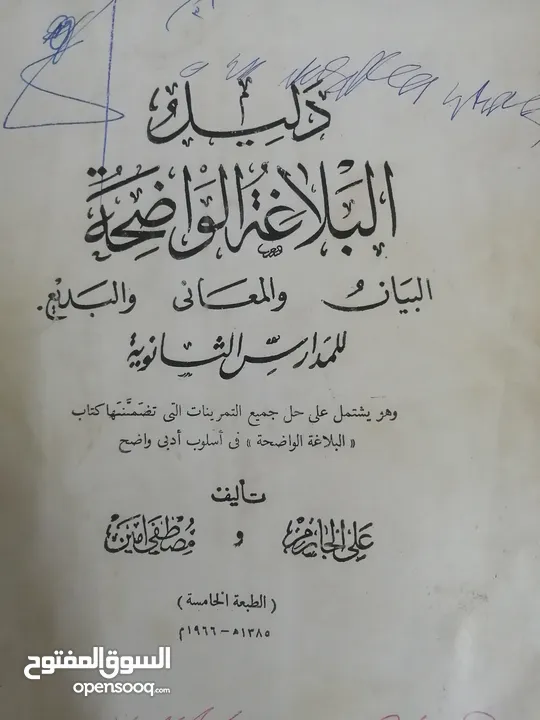 دَليلُ
البَلاغَةُ الوَاضِحَةُ
البيَانُ والمعَانى والبَديعُ.
للمدَارسِ الثانوية
وهو يشتمل على حل جميع التمرينات التى تضمَّنَتها كتاب
« البلاغة الواضحة » فى أسلوب أدبى واضح
تأليف
عَلى الجارِمْ و مُصْطَفى أمين
( الطبعة الخامسة )
١٣٨٥ه – ١٩٦٦م
السوق المفتوح
opensooq.com